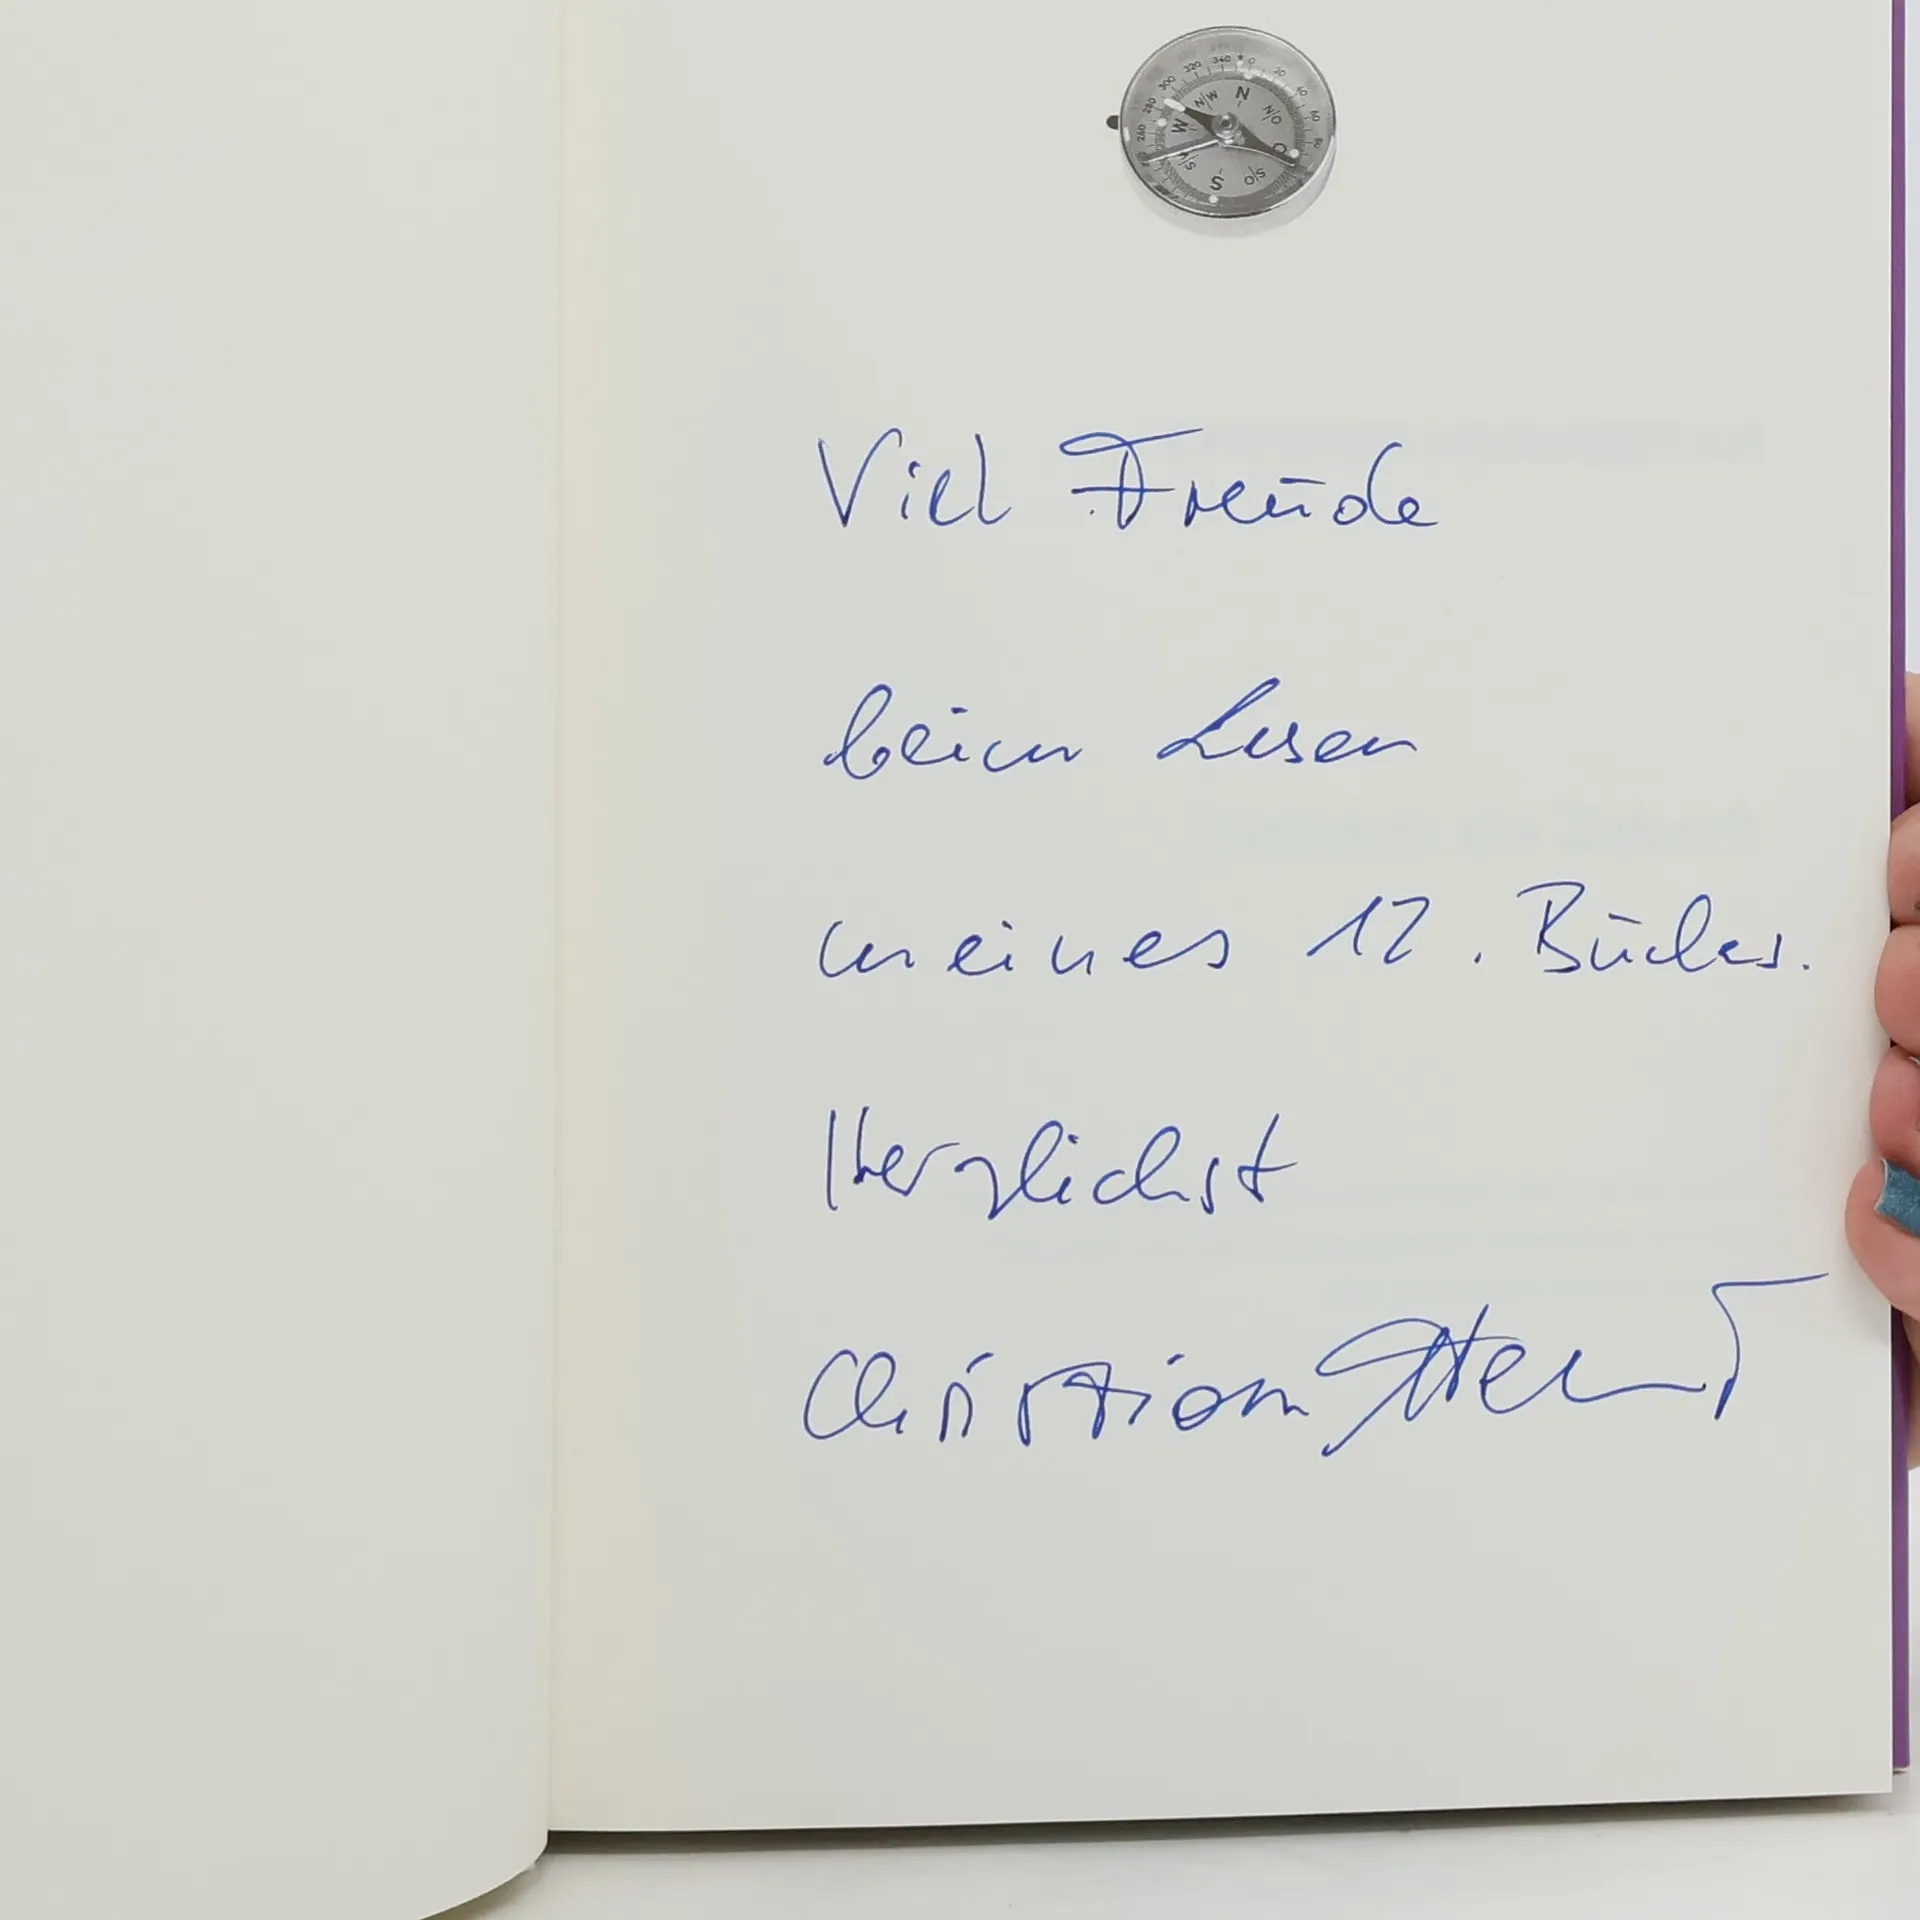 Viel Freude
beim Lesen
meines 12. Buches.
Herzlichst
Christian